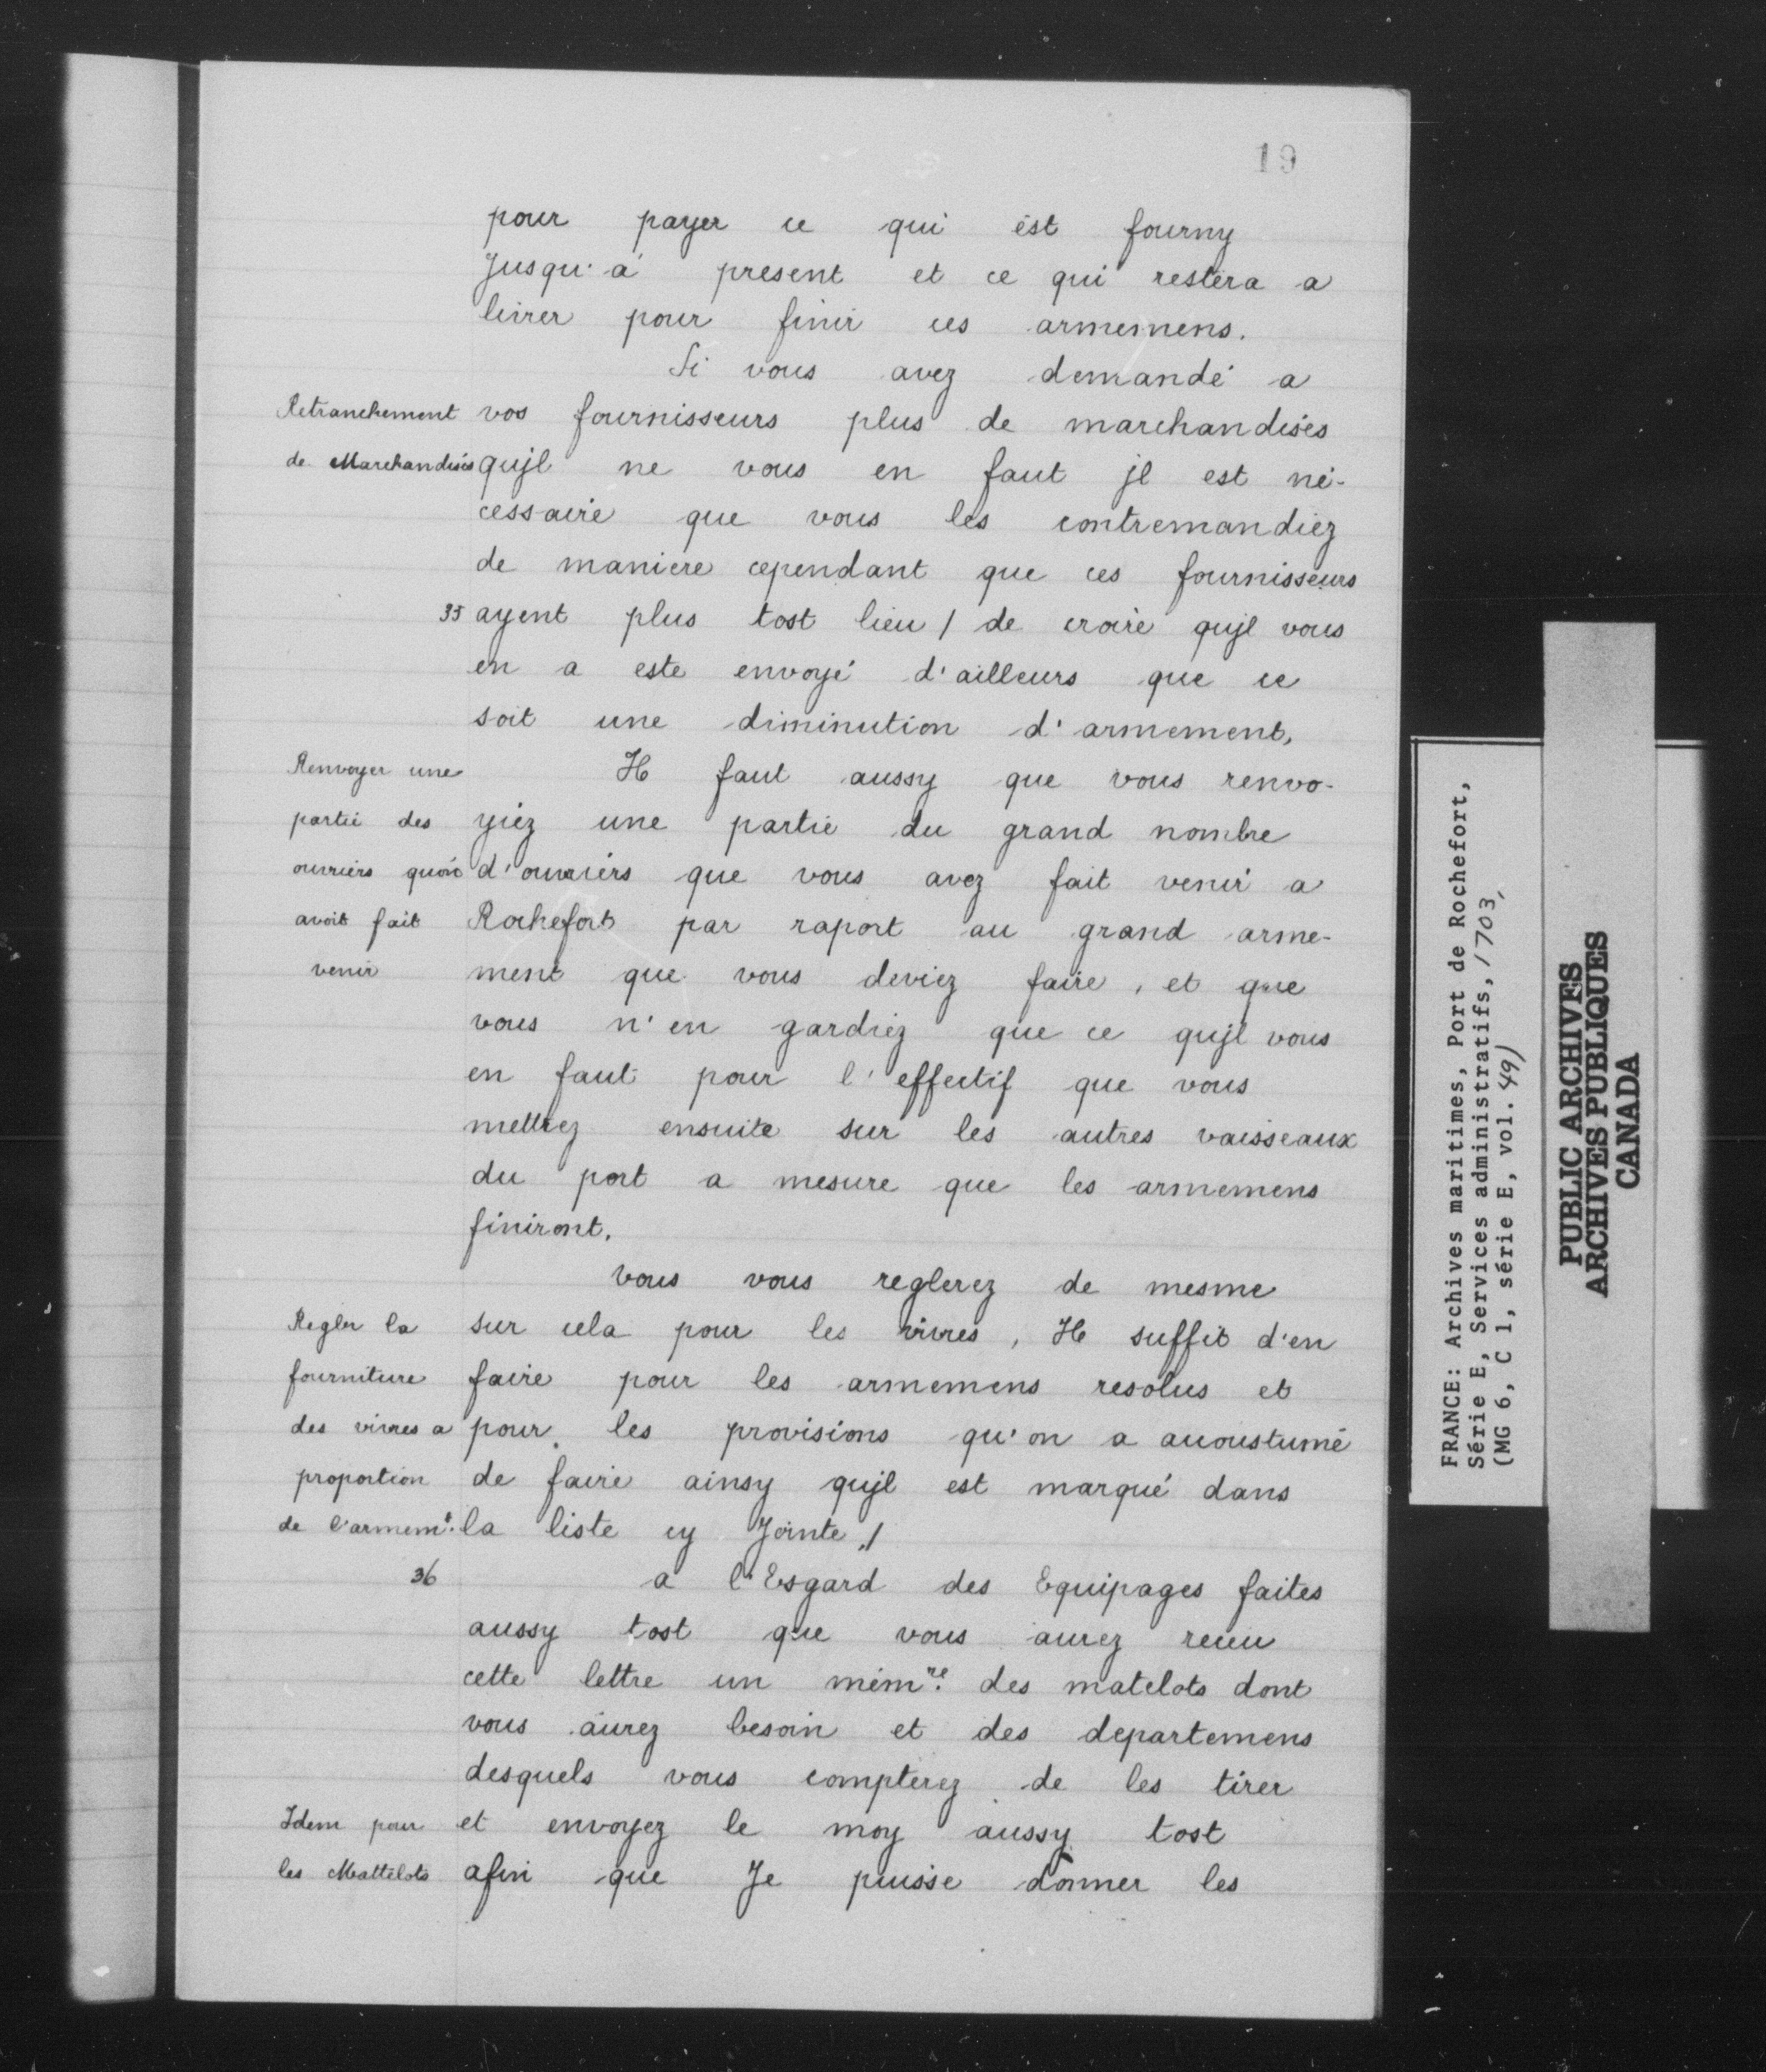 19
pour payer ce qui est fourny
Jusqu'a present et ce qui restera a
livrer pour finir ces armemens.
Si vous avez demandé a
Retranchement
de Marchandises
vos fournisseurs plus de marchandises
qujl ne vous en faut jl est né-
cessaire que vous les contremandiez
de maniere cependant que ces fournisseurs
35 ayent plus tost lieu / de croire qujl vous
en a este envoyé d'ailleurs que ce
soit une diminution d'armement,
Renvoyer une
partie des
ouvriers qu'on
avoit fait
venir
Il faut aussy que vous renvo-
yiez une partie du grand nombre
d'ouvriers que vous avez fait venir a
Rochefort par raport au grand arme-
ment que vous deviez faire, et que
vous n'en gardiez que ce qujl vous
en faut pour l'effectif que vous
mettrez ensuite sur les autres vaisseaux
du port a mesure que les armemens
finiront.
vous vous reglerez de mesme
Regler la
fourniture
des vivres a
proportion
de l'armemt.
sur cela pour les vivres, Il suffit d'en
faire pour les armemens resolus et
pour les provisions qu'on a accoustumé
de faire ainsy qujl est marqué dans
la liste cy Jointe, /
36
a l'Esgard des Equipages faites
aussy tost que vous aurez receu
cette lettre un mémre. des matelots dont
vous aurez besoin et des departemens
desquels vous compterez de les tirer
Idem pour
les Mattelots
et envoyez le moy aussy tost
afin que Je puisse donner les
FRANCE: Archives maritimes, Port de Rochefort,
Série E, Services administratifs, 1703,
(MG 6, C 1, série E, vol. 49)
PUBLIC ARCHIVES
ARCHIVES PUBLIQUES
CANADA